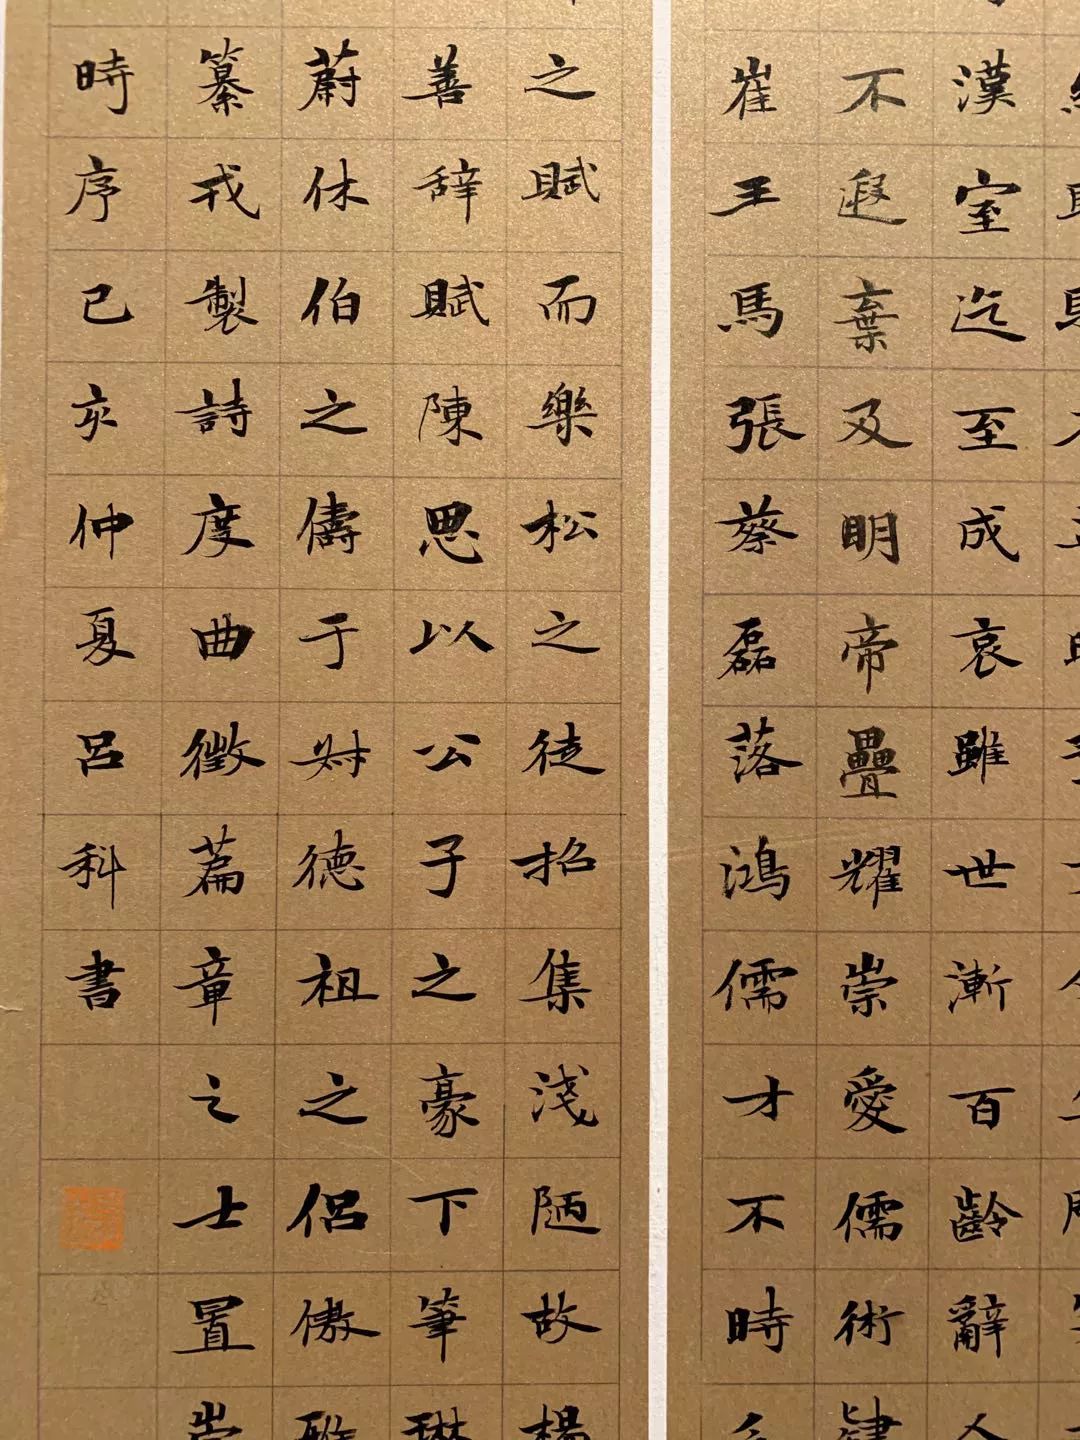 漢室迄至成哀雖世漸百齡辭人
不遐棄及明帝疊耀崇愛儒術肆
崔王馬張蔡磊落鴻儒才不時
之賦而樂松之徒招集淺陋故楊
善辞賦陳思以公子之豪下筆琳
蔚休伯之儔于叔德祖之侶傲雅
纂戎製詩度曲徵篇章之士置崇
時序己亥仲夏呂科書